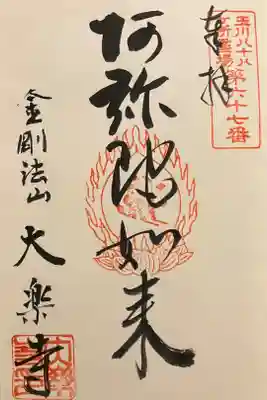 玉川八十八
ケ所霊場第六十七番
奉拝
阿弥陀如来
金剛法山 大楽寺